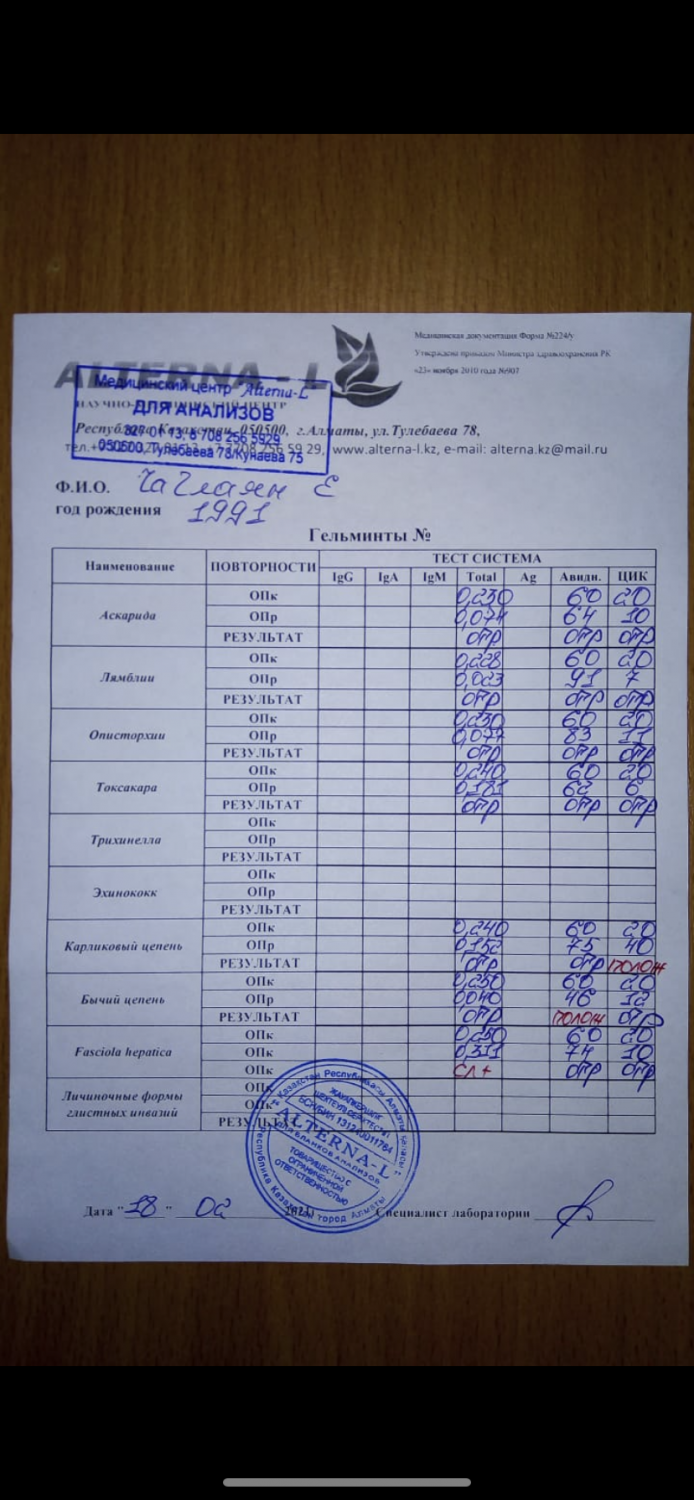 Медицинская документация Форма №224/у
Утверждена приказом Министра здравоохранения РК
«23» ноября 2010 года №907
ALTERNA - L
Медицинский центр "Alterna-L"
ДЛЯ АНАЛИЗОВ
327 01 13, 8 708 256 5929
050500, Тулебаева 78/Кунаева 75
Республика Казахстан, 050500, г.Алматы, ул.Тулебаева 78,
59 29, www.alterna-l.kz, e-mail: alterna.kz@mail.ru
Ф.И.О. Чаглаян Е
год рождения 1991
Гельминты №
Наименование ПОВТОРНОСТИ ТЕСТ СИСТЕМА
IgG IgA IgM Total Ag Авидн. ЦИК
Аскарида
ОПк 0,230 60 20
ОПр 0,074 64 10
РЕЗУЛЬТАТ отр отр отр
Лямблии
ОПк 0,228 60 20
ОПр 0,023 91 7
РЕЗУЛЬТАТ отр отр отр
Описторхии
ОПк 0,230 60 20
ОПр 0,077 83 11
РЕЗУЛЬТАТ отр отр отр
Токсакара
ОПк 0,240 60 20
ОПр 0,181 62 6
РЕЗУЛЬТАТ отр отр отр
Трихинелла
ОПк
ОПр
РЕЗУЛЬТАТ
Эхинококк
ОПк
ОПр
РЕЗУЛЬТАТ
Карликовый цепень
ОПк 0,240 60 20
ОПр 0,152 75 40
РЕЗУЛЬТАТ отр отр полож
Бычий цепень
ОПк 0,250 60 20
ОПр 0040 46 12
РЕЗУЛЬТАТ отр полож отр
Fasciola hepatica
ОПк 0,250 60 20
ОПк 0,311 74 10
ОПк сл + отр отр
Личиночные формы
глистных инвазий
ОПк
ОПк
РЕЗУЛЬТАТ
ALTERNA-L
ДЛЯ БЛАНКОВ АНАЛИЗОВ
ТОВАРИЩЕСТВО С
ОГРАНИЧЕННОЙ
ОТВЕТСТВЕННОСТЬЮ
Республика Казахстан город Алматы
Дата "18" 02 Специалист лаборатории